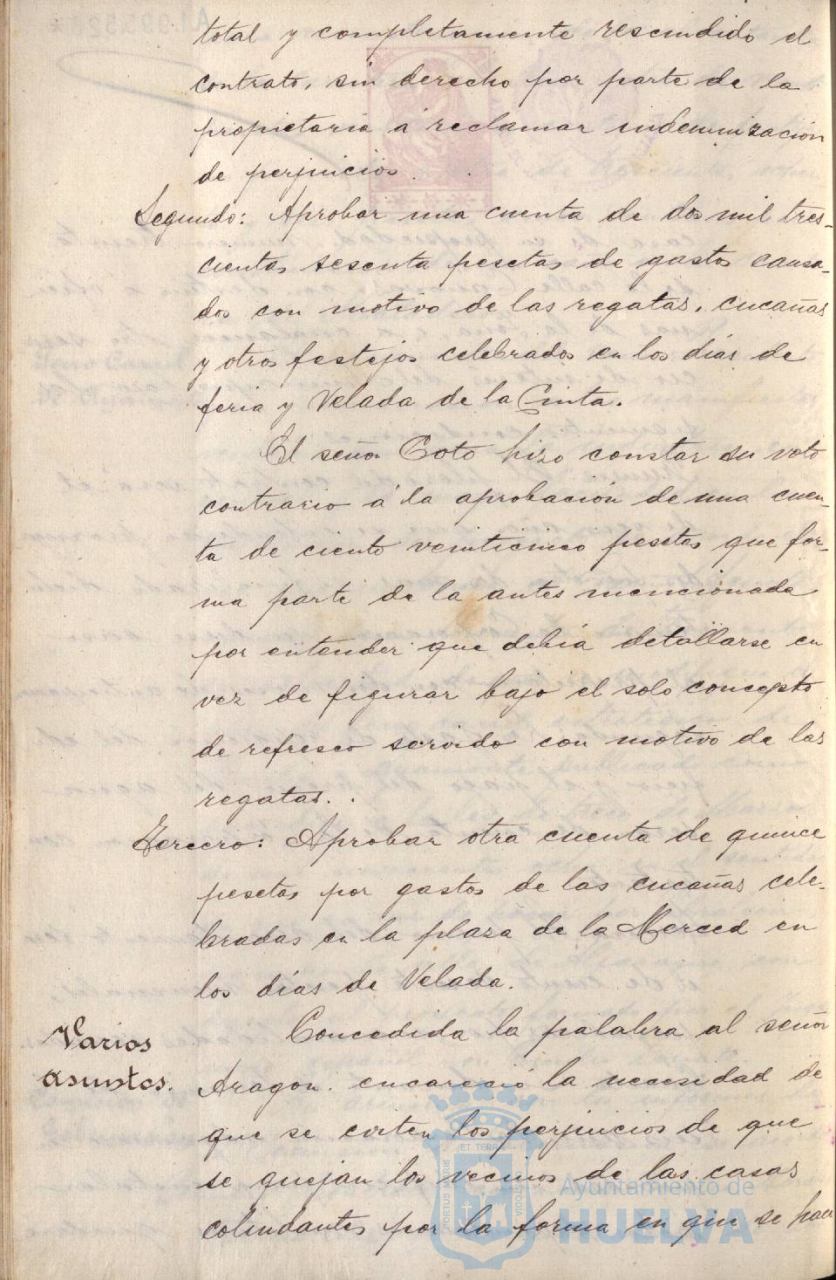 total y completamente rescindido el
contrato, sin derecho por parte de la
propietaria á reclamar indemnización
de perjuicios.
Segundo: Aprobar una cuenta de dos mil tres-
cientas sesenta pesetas de gastos causa-
dos con motivo de las regatas, cucañas
y otros festejos celebrados en los días de
feria y Velada de la Cinta.
El señor Coto hizo constar su voto
contrario á la aprobación de una cuen-
ta de ciento veinticinco pesetas que for-
ma parte de la antes mencionada
por entender que debía detallarse en
vez de figurar bajo el solo concepto
de refresco servido con motivo de las
regatas.
Tercero: Aprobar otra cuenta de quince
pesetas por gastos de las cucañas cele-
bradas en la plaza de la Merced en
los días de Velada.
Varios
asuntos.
Concedida la palabra al señor
Aragon encareció la necesidad de
que se corten los perjuicios de que
se quejan los vecinos de las casas
colindantes por la forma en que se hace
Ayuntamiento de
HUELVA